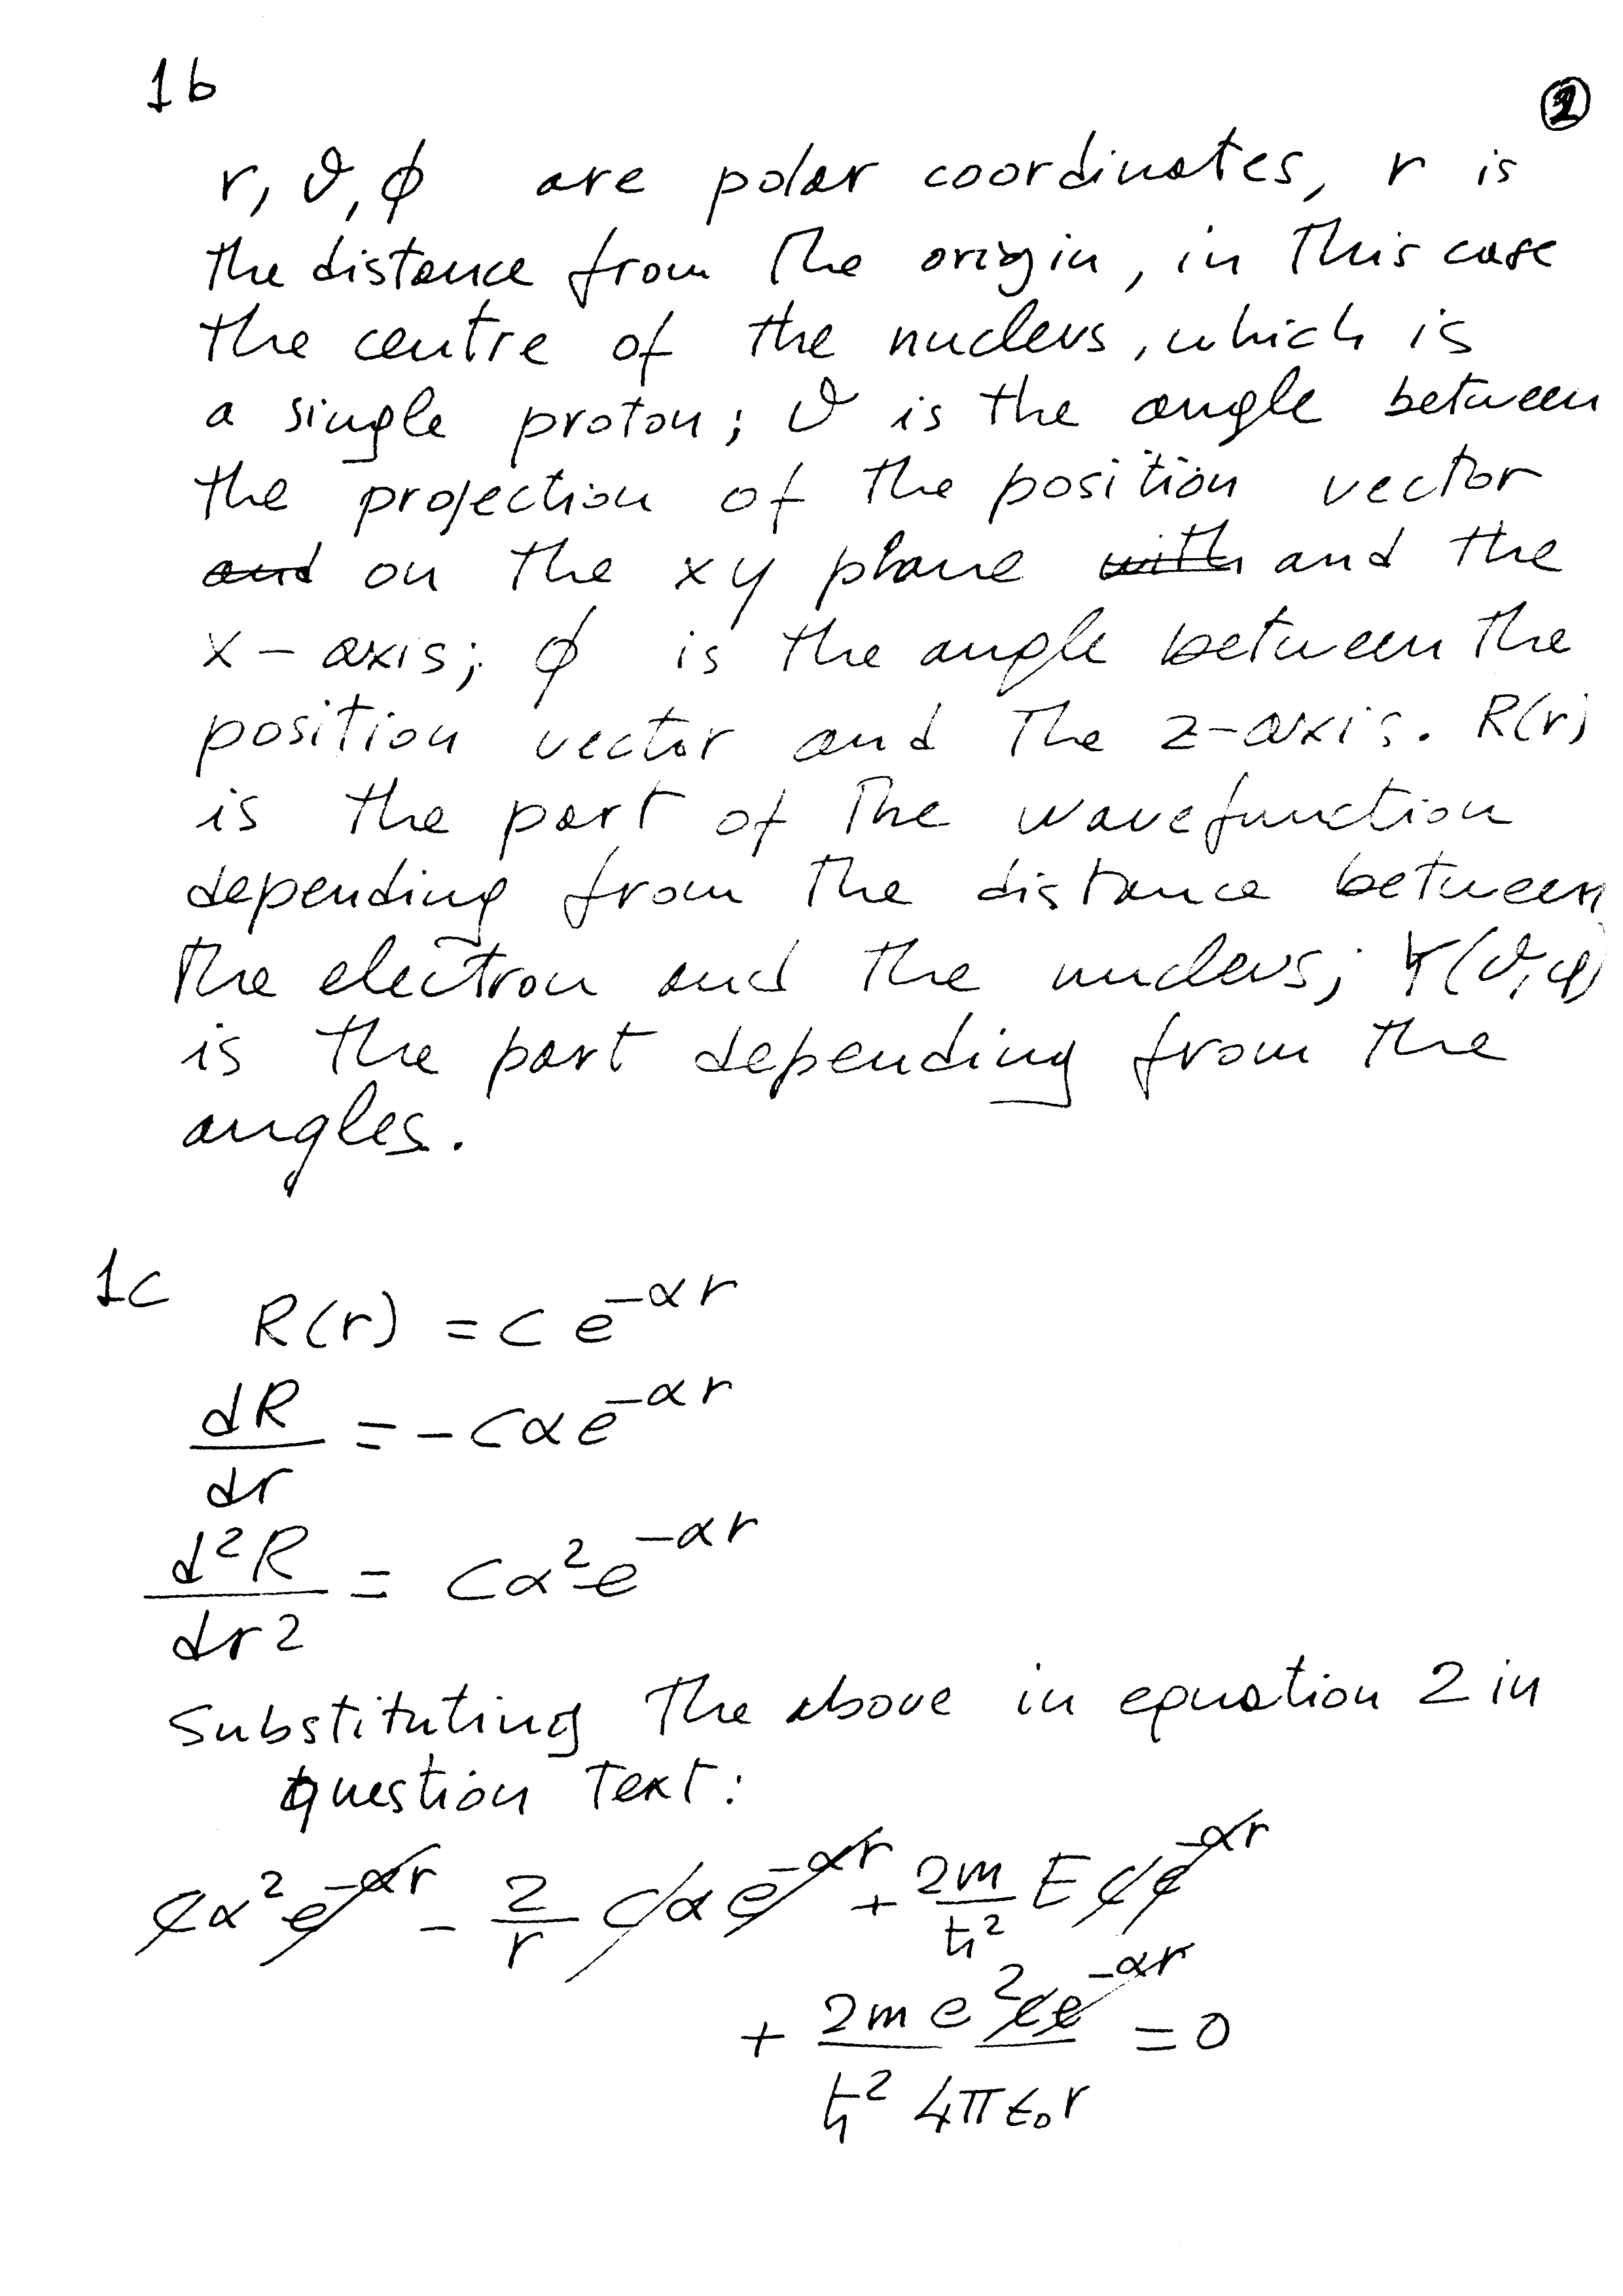 1b
②
r, ϑ, ϕ are polar coordinates, r is
the distance from the origin, in this case
the centre of the nucleus, which is
a single proton; ϑ is the angle between
the projection of the position vector
and on the xy plane with and the
x-axis; ϕ is the angle between the
position vector and the z-axis. R(r)
is the part of the wavefunction
depending from the distance between
the electron and the nucleus; Y(ϑ,φ)
is the part depending from the
angles.
1c
R(r) = C e^{-αr}
dR/dr = -Cαe^{-αr}
d²R/dr² = Cα²e^{-αr}
Substituting the above in equation 2 in
question text:
Cα²e^{-αr} - 2/r Cαe^{-αr} + 2m/ħ² E C e^{-αr}
+ 2me² C e^{-αr} / ħ² 4πε₀r = 0